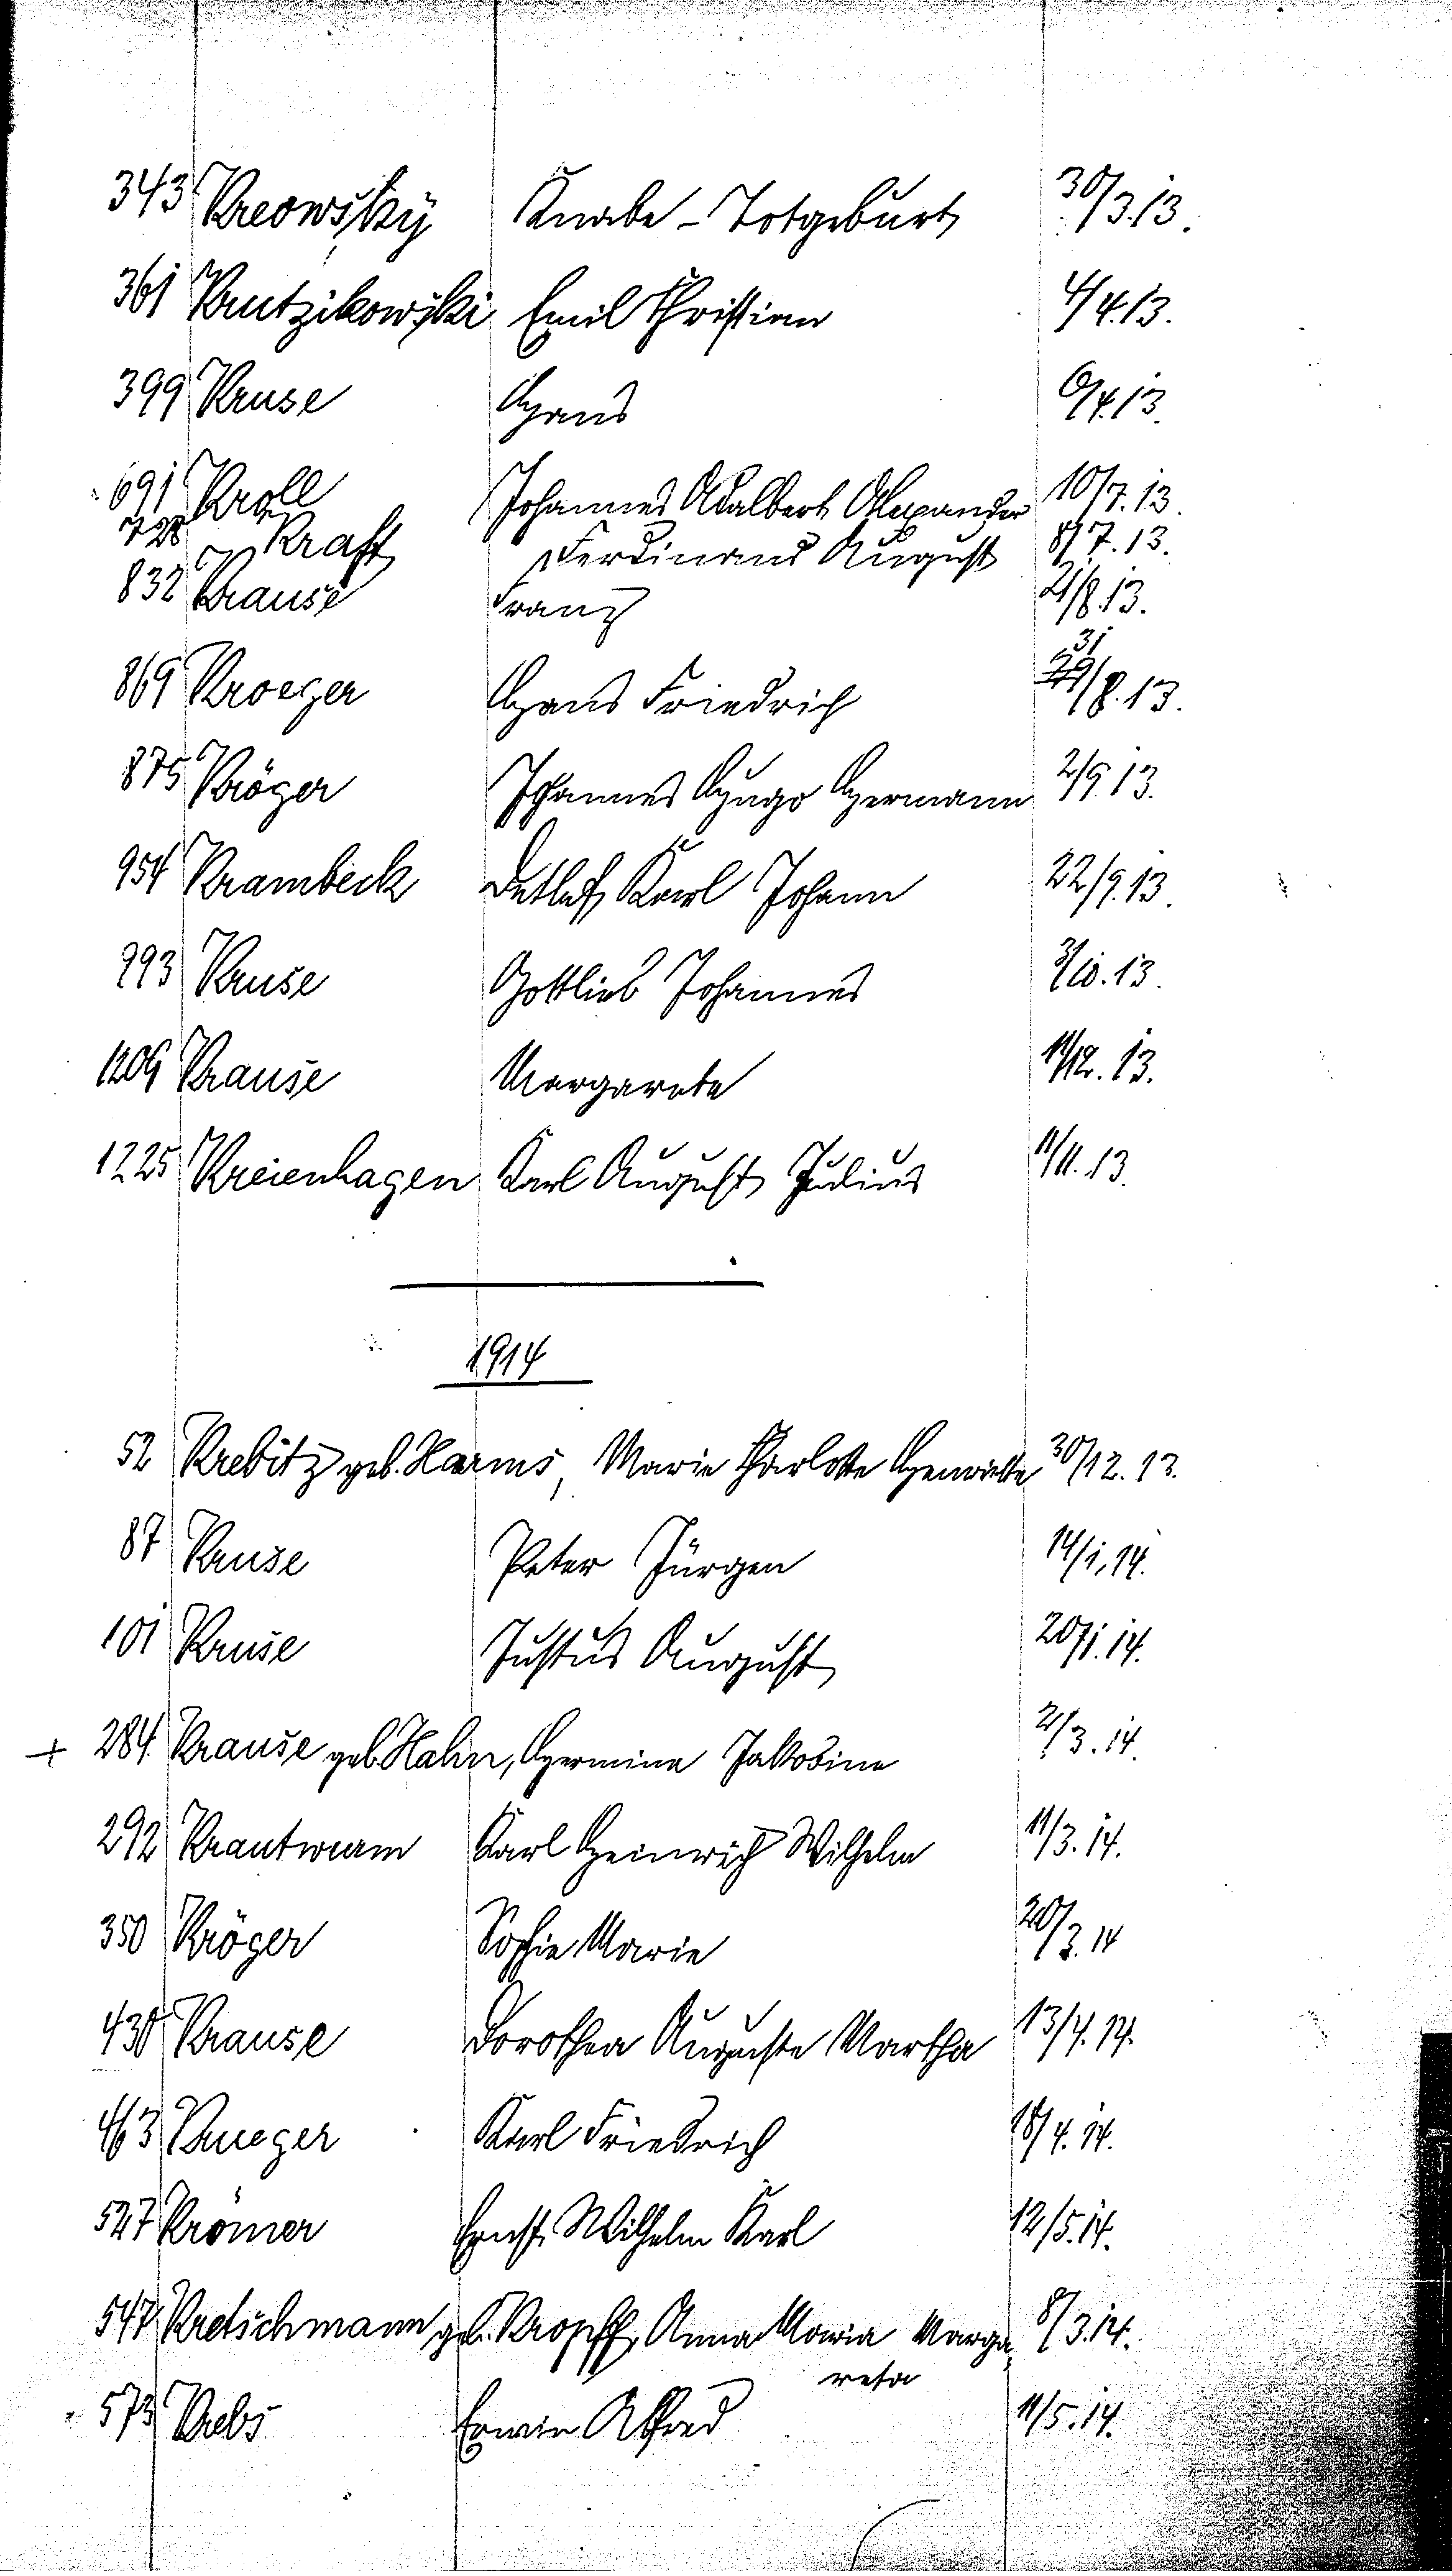 343 Kreowsky Knabe - Totgeburt 30/3.13.
361 Krutzikowski Emil Christian 4/4.13.
399 Kruse Hans 6/4.13.
691 Kroll Johannes Adalbert Alexander 10/7.13.
728 Kraft Ferdinand August 8/7.13.
832 Krause Franz 21/8.13.
31
869 Kroeger Hans Friedrich 29/8.13.
875 Kröger Johannes Hugo Hermann 2/9.13.
954 Krambeck Detlef Karl Johann 22/9.13.
993 Kruse Gottlieb Johannes 3/10.13.
1209 Krause Margarete 11/12.13.
1225 Kreienhagen Karl August Julius 11/11.13.
1914
52 Krebitz geb. Harms, Marie Charlotte Henriette 30/12.13.
87 Kruse Peter Jürgen 14/1.14.
101 Kruse Justus August 20/1.14.
+ 284. Krause geb. Hahn, Hermine Jakobine 2/3.14.
292 Krautwurm Karl Heinrich Wilhelm 11/3.14.
350 Kröger Sophie Marie 20/3.14
430 Krause Dorothea Auguste Martha 13/4.14.
463 Krueger Karl Friedrich 18/4.14.
527 Krömer Ernst Wilhelm Karl 12/5.14.
547 Kretschmann geb. Kropff, Anna Maria Marga 8/3.14.
reta
573 Krebs Erwin Alfred 11/5.14.